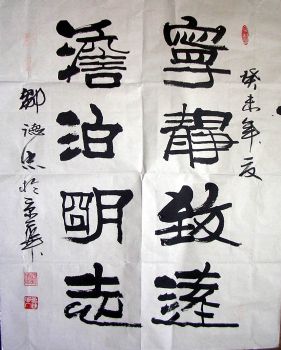 癸未年夏
寧靜致遠
澹泊明志
於京華